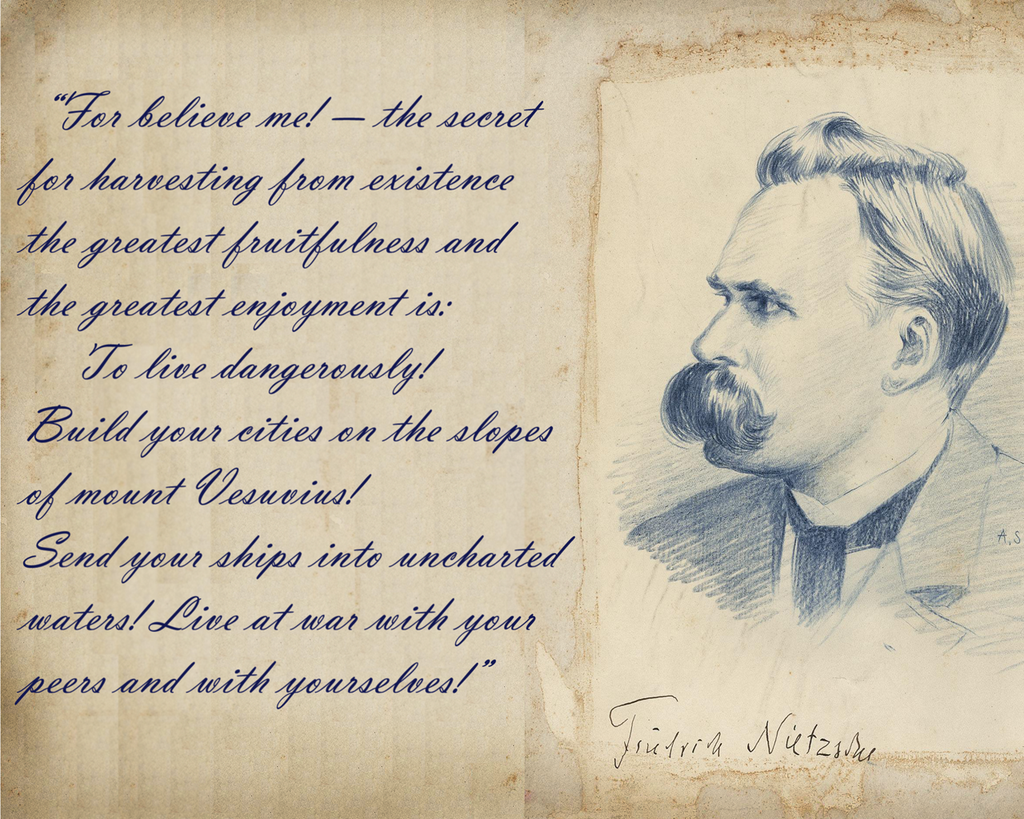 “For believe me! — the secret
for harvesting from existence
the greatest fruitfulness and
the greatest enjoyment is:
To live dangerously!
Build your cities on the slopes
of mount Vesuvius!
Send your ships into uncharted
waters! Live at war with your
peers and with yourselves!”
A.S
Friedrich Nietzsche